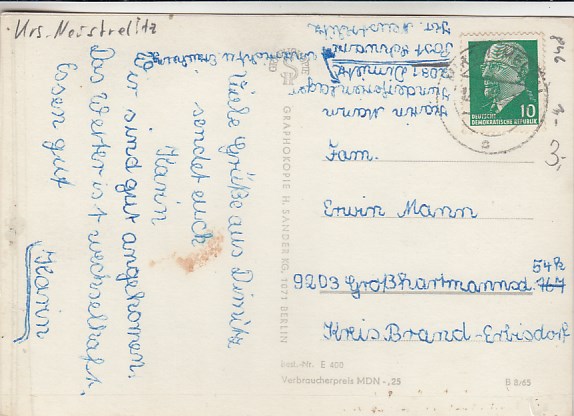 Krs. Neustrelitz
Viele Grüße aus Dimitz
sendet euch
Karin
Wir sind gut angekommen.
Das Wetter ist wechselhaft.
Essen gut
Karin
Karin Mann
Kinderferienlager
2081 Dimitz
Post Schwarz
Kr. Neustrelitz
DEUTSCHE
DEMOKRATISCHE REPUBLIK
10
3,-
Fam.
Erwin Mann
9203 Großhartmannsd. 167
54k
Kreis Brand-Erbisdorf
GRAPHOKOPIE H. SANDER KG, 1071 BERLIN
Best.-Nr. E 400
Verbraucherpreis MDN -,25
B 8/65